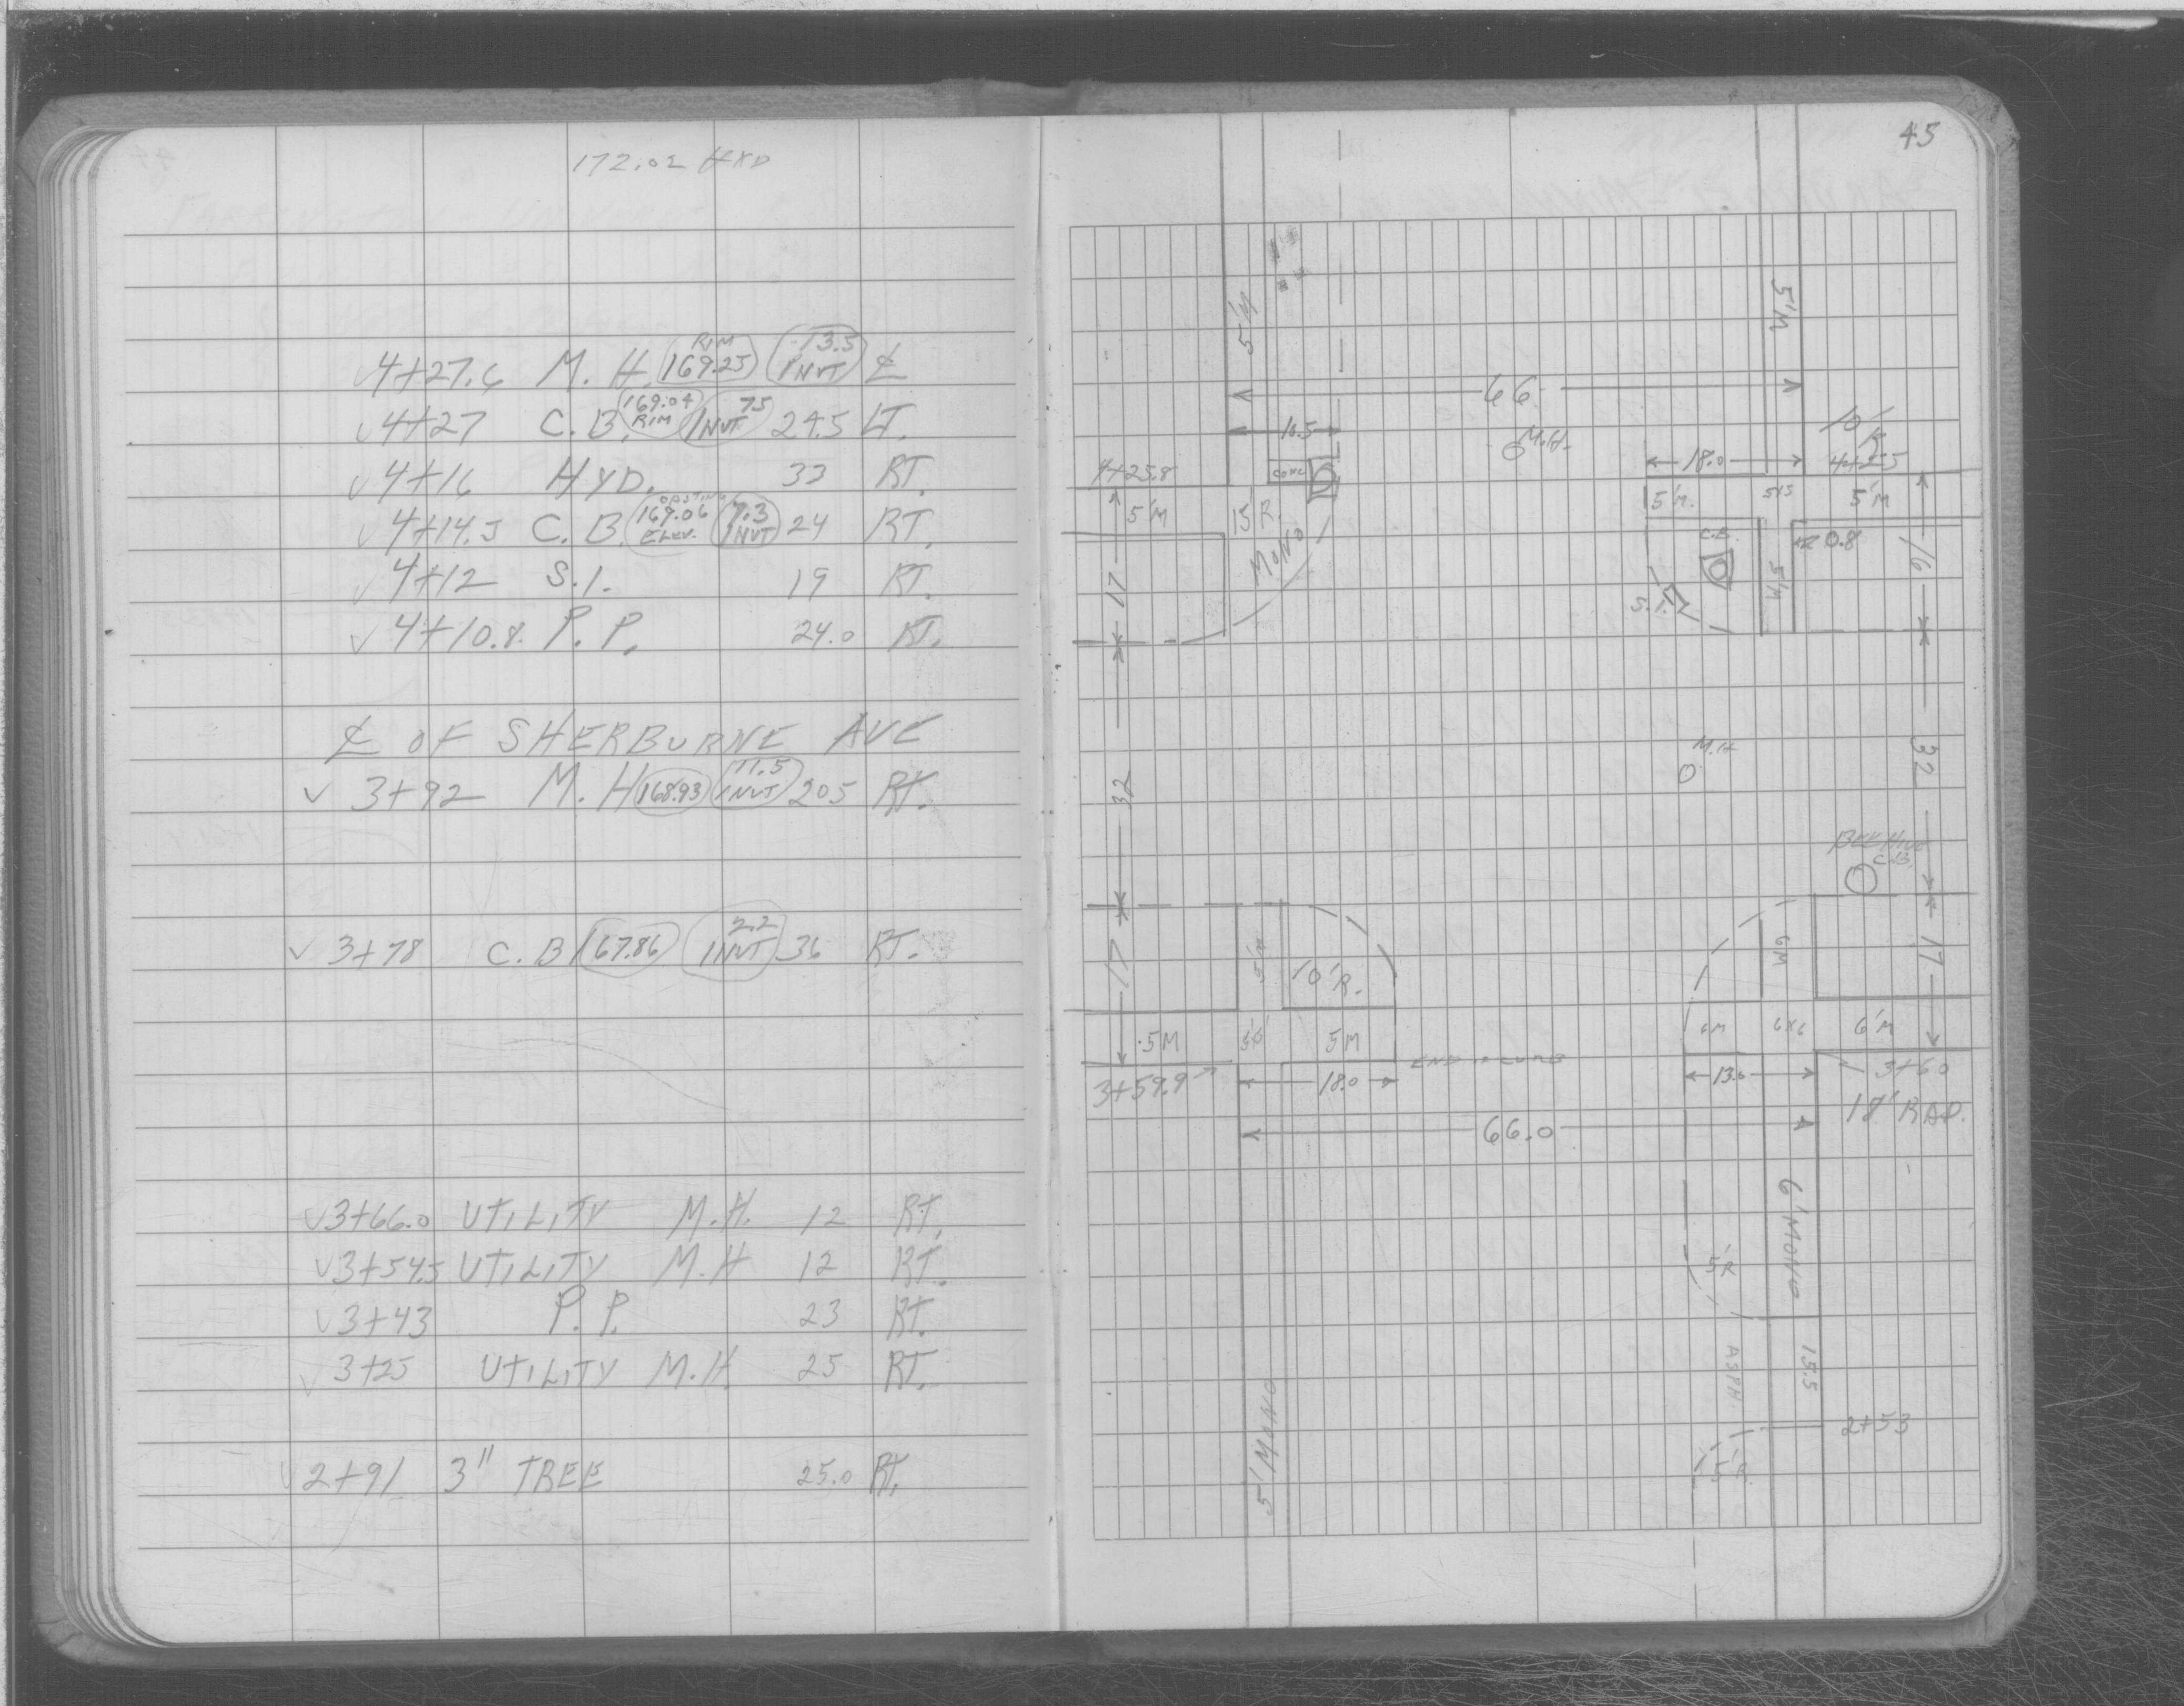 172.02 HYD
4+27.6 M.H. RIM 169.25 13.5 INVT ℄
4+27 C.B. 169.04 RIM 75 INVT 24.5 LT.
4+16 HYD. 33 RT.
4+14.5 C.B. 169.06 ELEV. 7.3 INVT 24 RT.
4+12 S.I. 19 RT.
4+10.8 P.P. 24.0 RT.
℄ OF SHERBURNE AVE
3+92 M.H 168.93 11.5 INVT 205 RT.
3+78 C.B 167.86 2.2 INVT 36 RT.
3+66.0 UTILITY M.H. 12 RT.
3+54.5 UTILITY M.H 12 RT.
3+43 P.P. 23 RT.
3+25 UTILITY M.H. 25 RT.
2+91 3" TREE 25.0 RT.
45
5'M
5'M
66
10'
R
10.5
M.H.
18.0
4+25
4+25.8
CONC
5'M
15'R.
5'R.
5x5
5'M
MONO
C.B.
0.8
17
5'M
16
S.I.
M.H
32
32
BEEHIVE
C.B.
17
5'M
10'R.
6M
17
5M
5M
6M
6x6
6'M
END OF CURB
3+59.9
18.0
13.0
3+60
18' RAD.
66.0
6' MONO
5'R
ASPH
15.5
5' MONO
2+53
5'R.